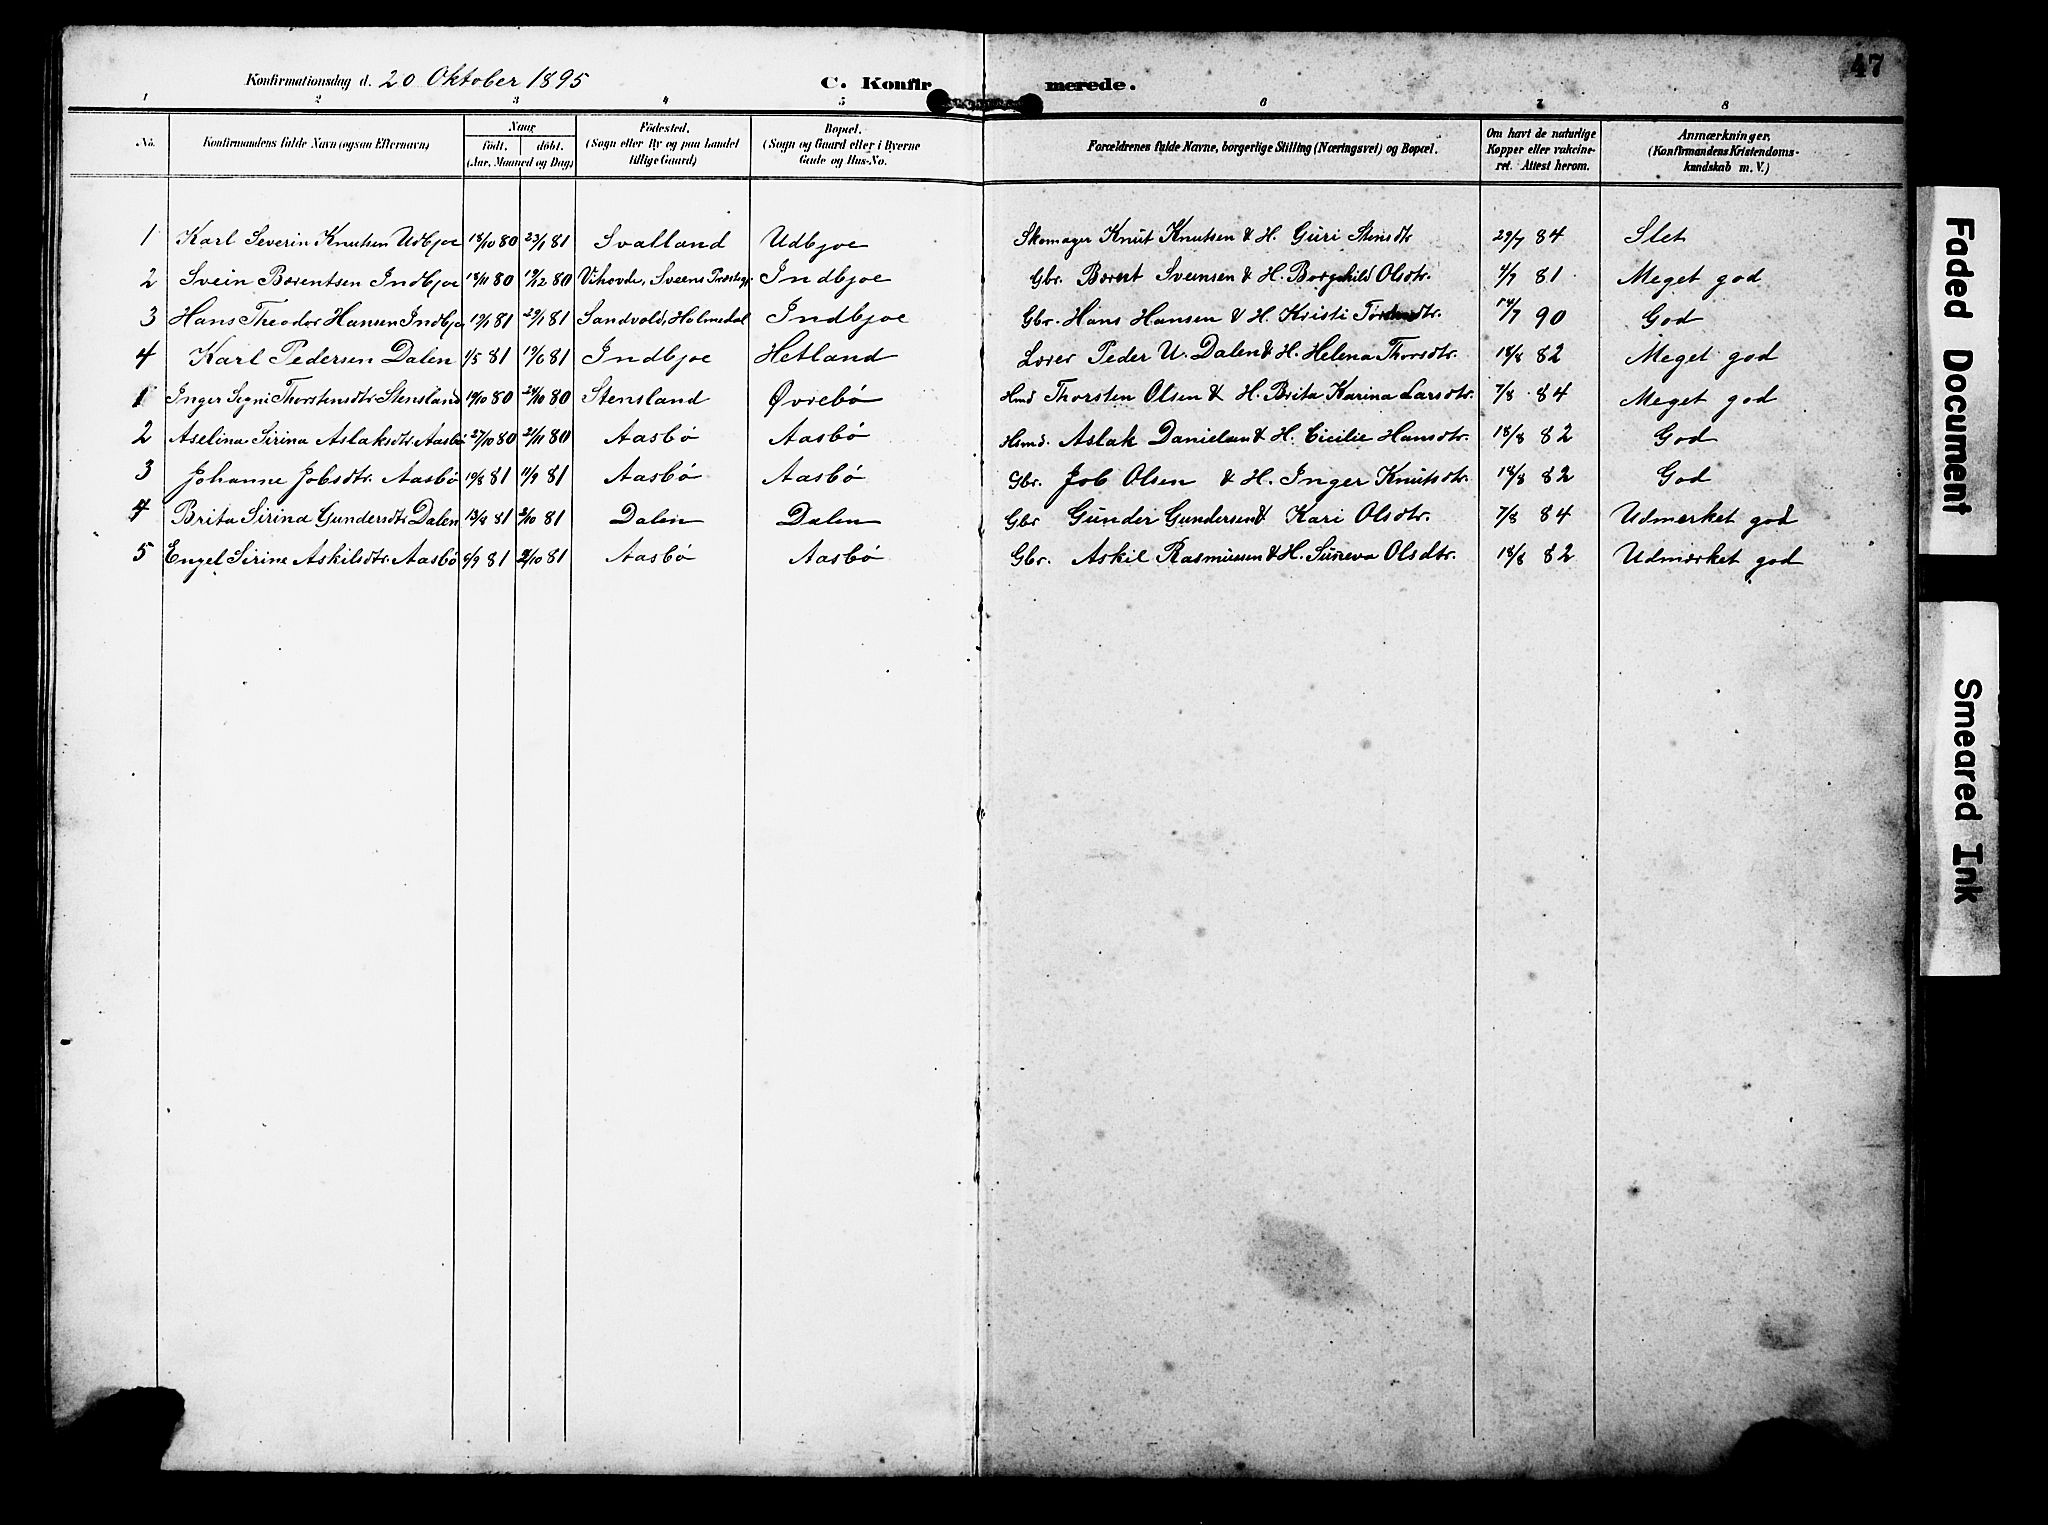 47
Konfirmationsdag d. 20 Oktober 1895 C. Konfirmerede.
1 2 3 4 5 6 7 8
No. Konfirmandens fulde Navn (ogsaa Efternavn) Naar födt. döbt. (Aar, Maaned og Dag) Födested. (Sogn eller By og paa Landet tillige Gaard) Bopæl. (Sogn og Gaard eller i Byerne Gade og Hus-No. Forældrenes fulde Navne, borgerlige Stilling (Næringsvei) og Bopæl. Om havt de naturlige Kopper eller vakcineret. Attest herom. Anmærkninger. (Konfirmandens Kristendomskundskab m. V.)
1 Karl Severin Knutsen Udbjoe 18/10 80 23/1 81 Svatland Udbjoe Skomager Knut Knutsen & H. Guri Stensdtr 29/7 84 Slet
2 Svein Bærentsen Indbjoe 18/11 80 19/12 80 Vihovde, Sveens Indbjoe Gbr. Berent Sveinsen & H. Borghild Olsdtr. 4/7 81 Meget god
3 Hans Theodor Hansen Indbjoe 81 29/1 81 Sandvold, Holmedal Indbjoe Gbr. Hans Hansen & H. Kristi 90 God
4 Karl Pedersen Dalen 1/5 81 19/6 81 Indbjoe Hetland Peder U. Dalen & H. Helena Thorsdtr. 18/8 82 Meget god
1 Inger Signi Thorstensdtr. Stensland 19/10 80 24/10 80 Stensland Øvrebø Hmd Thorsten Olsen & H. Brita Karina Larsdtr. 7/8 84 Meget god
2 Aselina Sirina Aslaksdtr. Aasbø 27/10 80 21/11 80 Aasbø Aasbø Hsmd. Aslak Danielsen & H. Cicilie Hansdtr. 18/8 82 God
3 Johanne Jobsdtr. Aasbø 19/8 81 11/9 81 Aasbø Aasbø Gbr. Job Olsen & H. Inger Knutsdtr. 18/8 82 God
4 Brita Sirina Gundersdtr. Dalen 13/8 81 2/10 81 Dalen Dalen Gbr Gunder Gundersen & Kari Olsdtr. 7/8 84 Udmerket god
5 Engel Sirine Askilsdtr. Aasbø 6/9 81 2/10 81 Aasbø Aasbø Gbr. Askil Rasmussen & H. Sureva Olsdtr. 18/8 82 Udmærket god
Faded Document
Smeared Ink